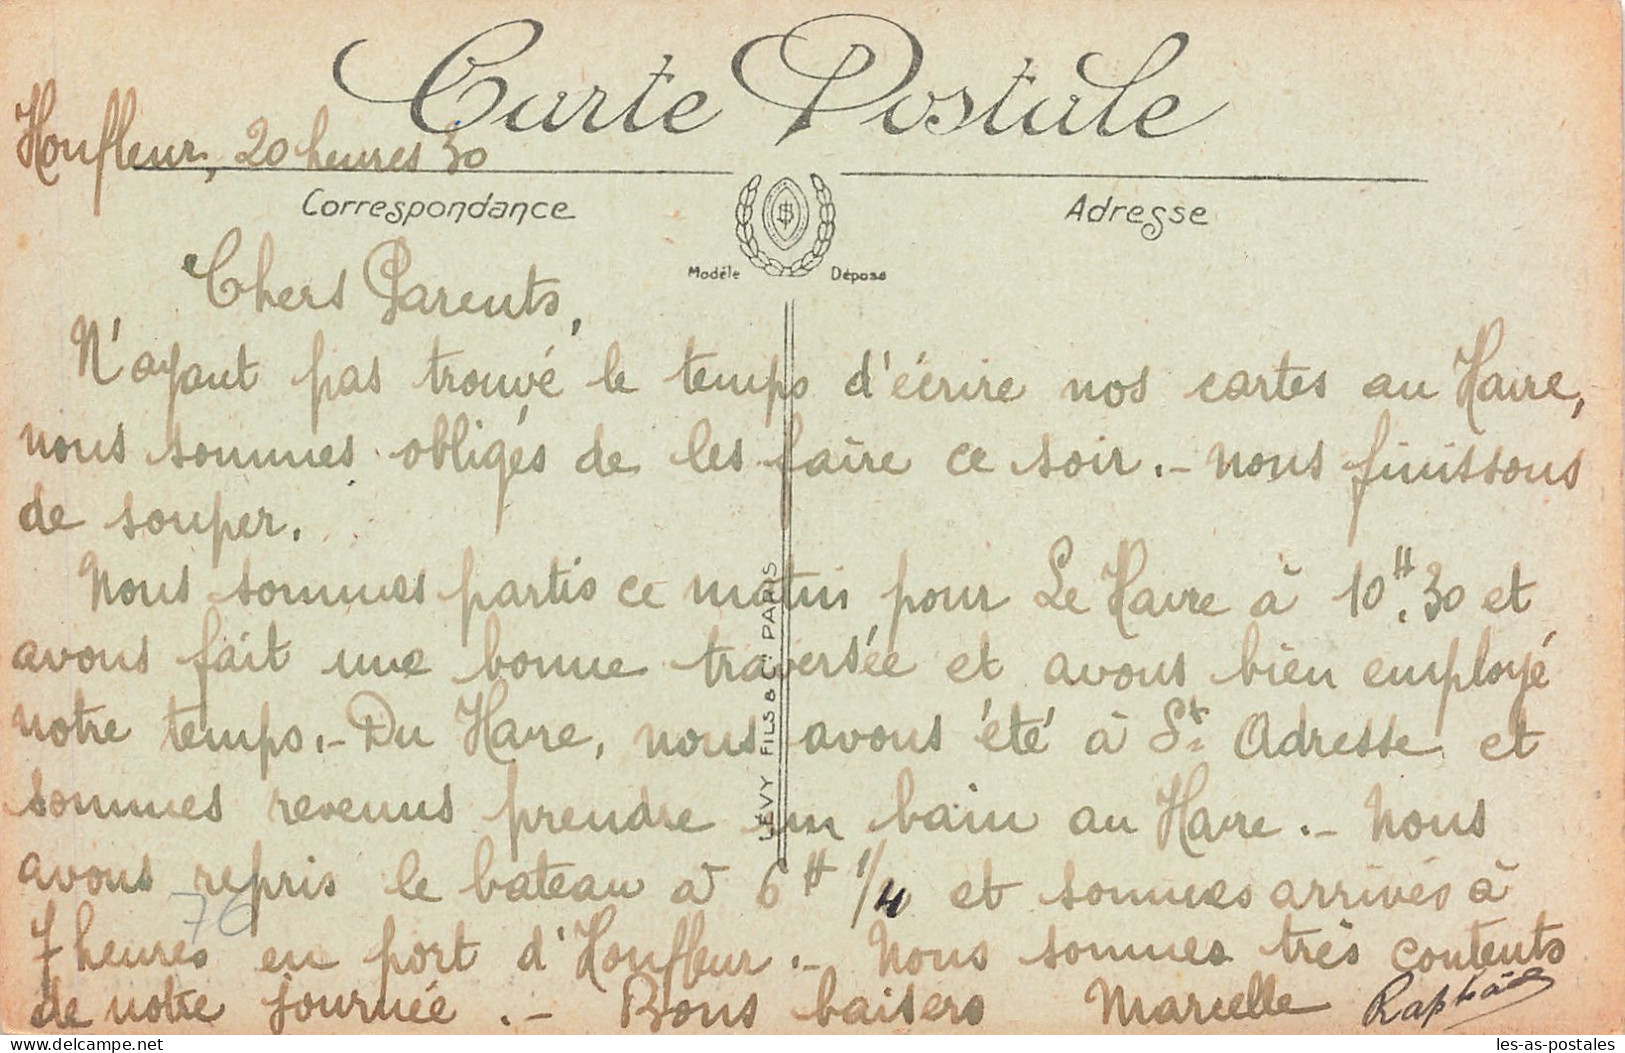 Carte Postale
Honfleur, 20 heures 30
Correspondance
Adresse
Modèle Déposé
Chers Parents,
N'ayant pas trouvé le temps d'écrire nos cartes au Havre,
nous sommes obligés de les faire ce soir. - nous finissons
de souper.
Nous sommes partis ce matin pour Le Havre à 10H.30 et
avons fait une bonne traversée et avons bien employé
notre temps. - Du Havre, nous avons été à St. Adresse et
sommes revenus prendre un bain au Havre. - Nous
avons repris le bateau à 6H 1/4 et sommes arrivés à
76
7 heures en port d'Honfleur. - Nous sommes très contents
de notre journée. - Bons baisers Marcelle Raphaël
LEVY FILS & Cie PARIS
les-as-postales
delcampe.net